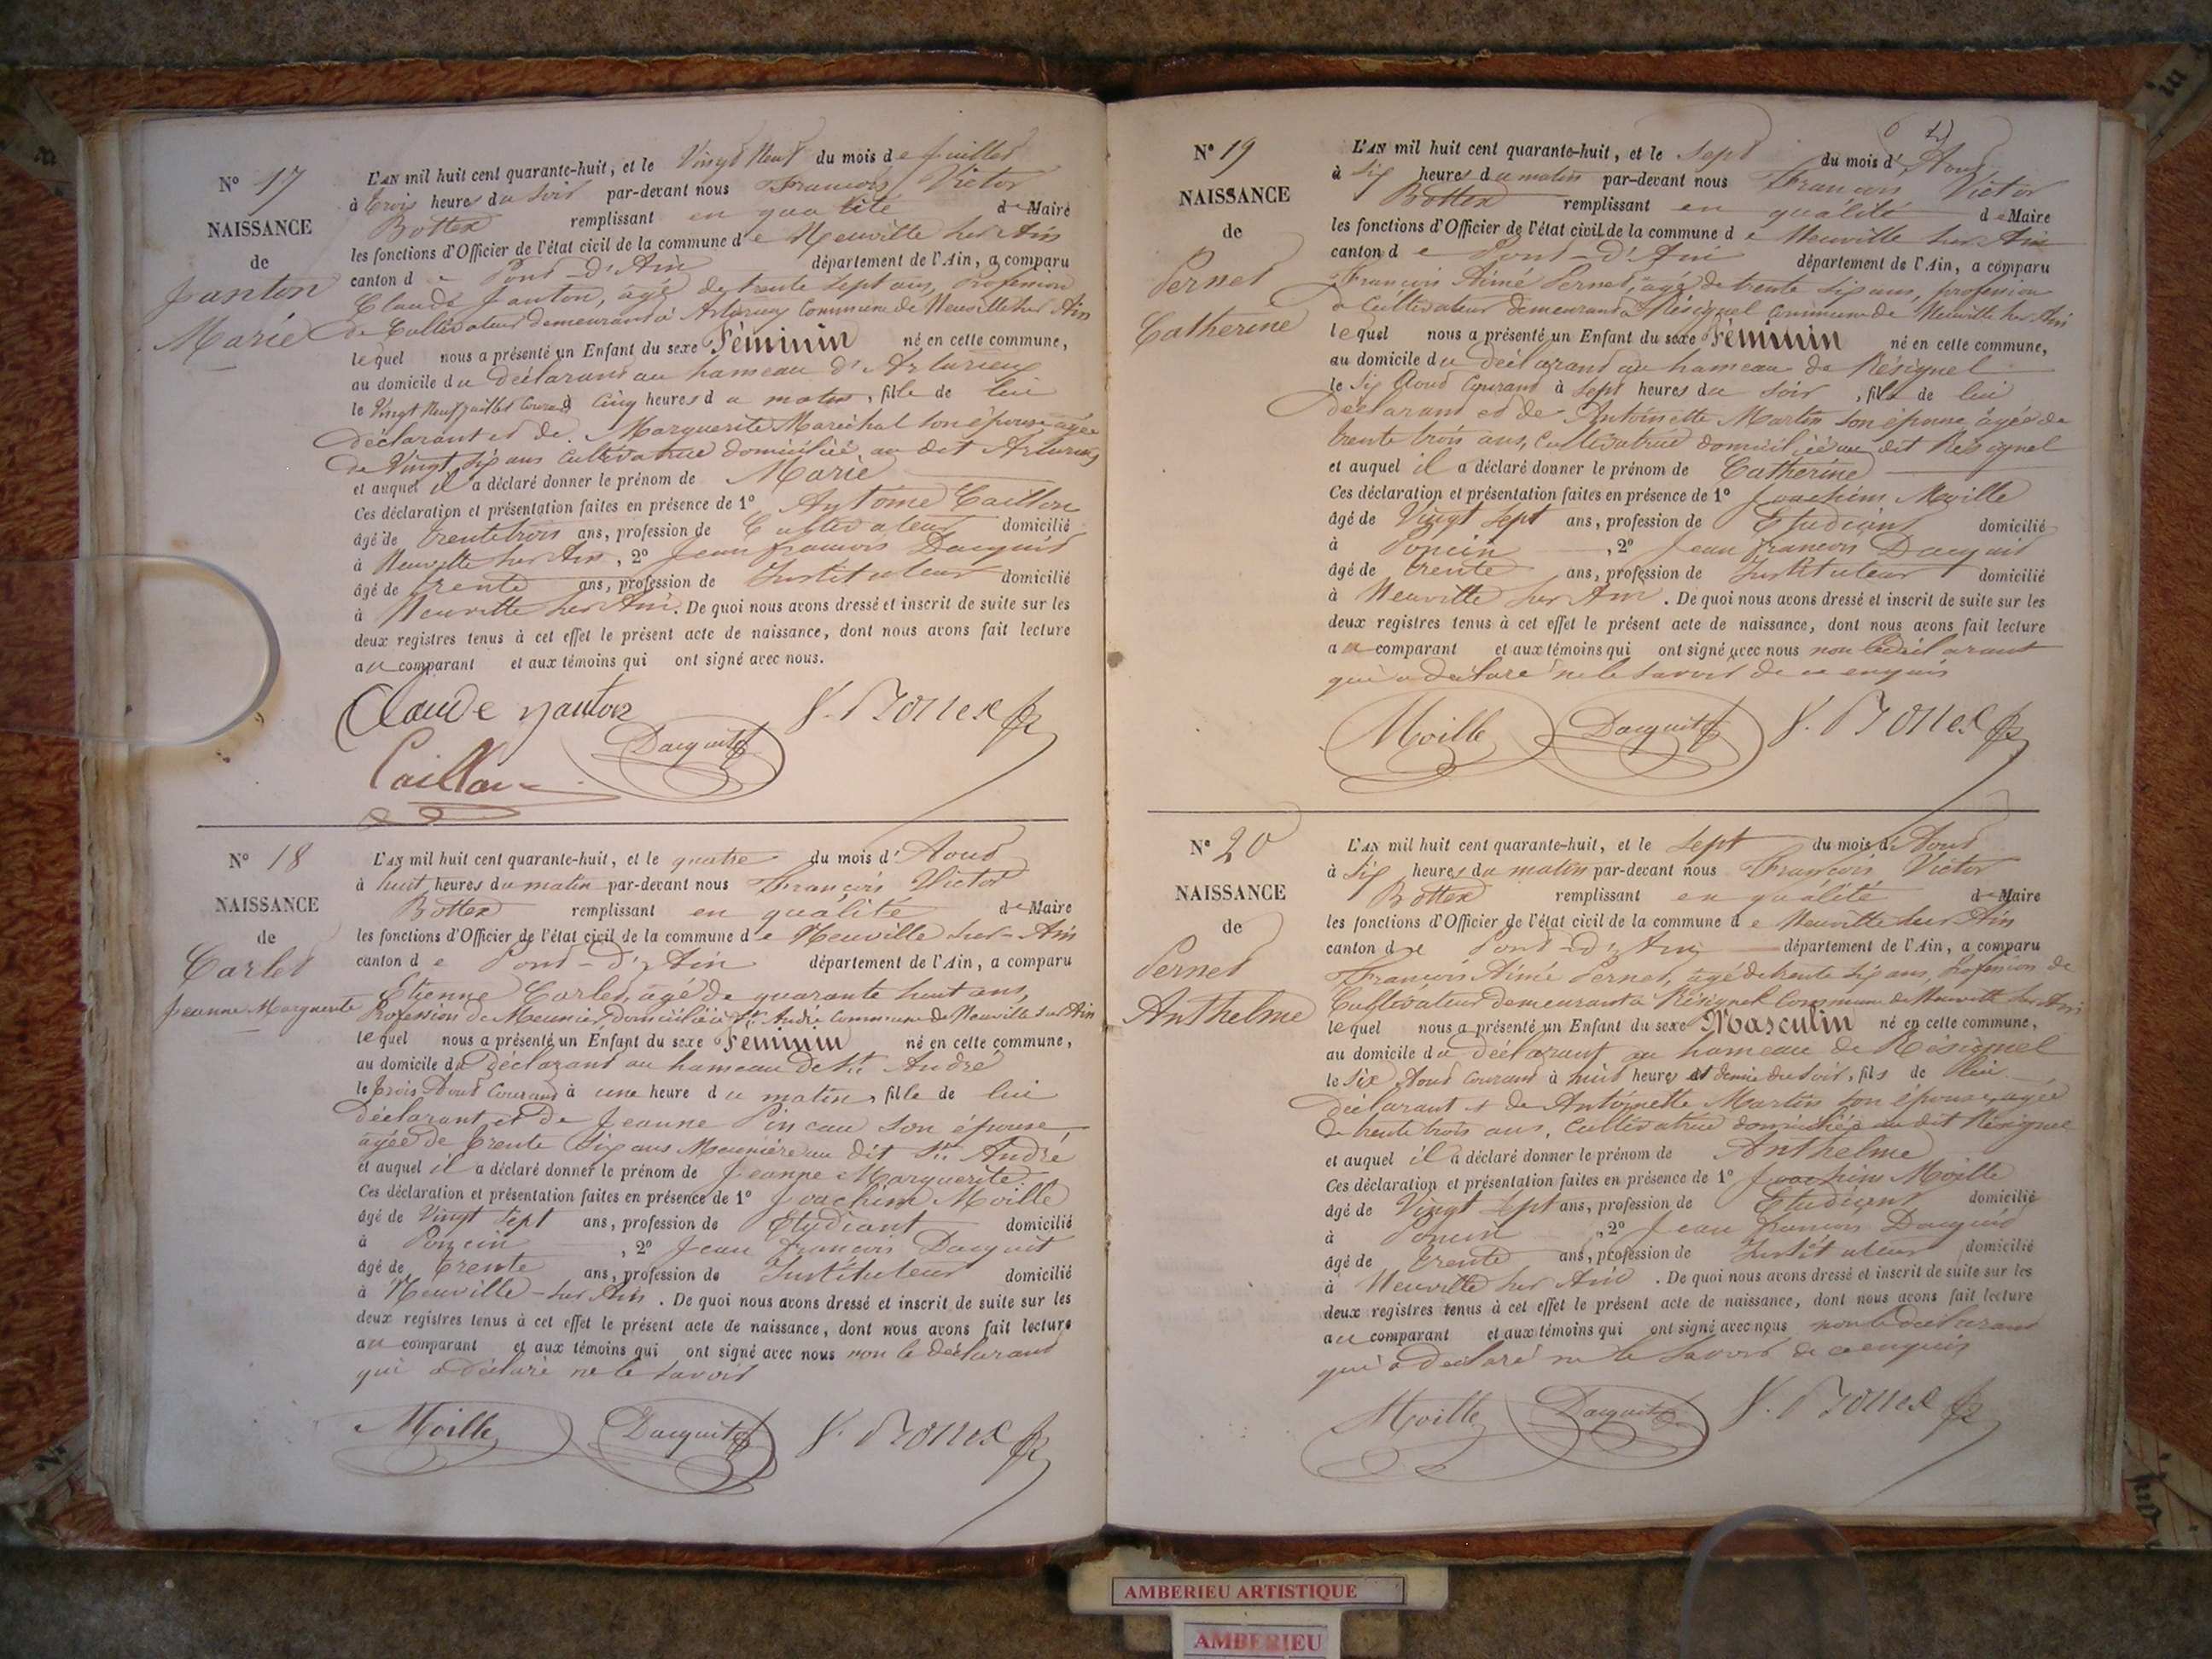 N° 17
NAISSANCE
de
Janton
Marie
L'AN mil huit cent quarante-huit, et le Vingt Neuf du mois de Juillet
à trois heures du soir par-devant nous François Victor
Bottex remplissant en qualité de Maire
les fonctions d'Officier de l'état civil de la commune de Neuville sur Ain
canton de Pont-d'Ain département de l'Ain, a comparu
Claude Janton, âgé de trente sept ans, profession
de Cultivateur demeurant à Arturieux Commune de Neuville sur Ain
lequel nous a présenté un Enfant du sexe Féminin né en cette commune,
au domicile du déclarant au hameau d'Arturieux
le Vingt Neuf juillet courant à Cinq heures du matin, fille de lui
déclarant et de Marguerite Maréchal son épouse agée
de Vingt six ans cultivatrice domiciliée au dit Arturieux
et auquel il a déclaré donner le prénom de Marie
Ces déclaration et présentation faites en présence de 1° Antoine Caillon
âgé de trente trois ans, profession de Cultivateur domicilié
à Neuville sur Ain, 2° Jean françois Dacquit
âgé de trente ans, profession de Instituteur domicilié
à Neuville sur Ain. De quoi nous avons dressé et inscrit de suite sur les
deux registres tenus à cet effet le présent acte de naissance, dont nous avons fait lecture
au comparant et aux témoins qui ont signé avec nous.
Claude Janton V. Bottex
Caillon Dacquit
N° 18
NAISSANCE
de
Carlet
Jeanne Marguerite
L'AN mil huit cent quarante-huit, et le quatre du mois d'Aout
à huit heures du matin par-devant nous François Victor
Bottex remplissant en qualité de Maire
les fonctions d'Officier de l'état civil de la commune de Neuville sur-Ain
canton de Pont-d'Ain département de l'Ain, a comparu
Etienne Carlet, agé de quarante huit ans,
Profession de Meunier, domicilié à St. André commune de Neuville sur Ain
lequel nous a présenté un Enfant du sexe Féminin né en cette commune,
au domicile du Déclarant au hameau de St. André
le trois Aout courant à une heure du matin, fille de lui
déclarant et de Jeanne Pineau son épouse,
agée de trente six ans Meunière au dit St. André
et auquel il a déclaré donner le prénom de Jeanne Marguerite
Ces déclaration et présentation faites en présence de 1° Joachim Moille
âgé de Vingt sept ans, profession de Etudiant domicilié
à Poncin, 2° Jean françois Dacquit
âgé de trente ans, profession de Instituteur domicilié
à Neuville-sur Ain. De quoi nous avons dressé et inscrit de suite sur les
deux registres tenus à cet effet le présent acte de naissance, dont nous avons fait lecture
au comparant et aux témoins qui ont signé avec nous non le déclarant
qui a déclaré ne le savoir
Moille Dacquit V. Bottex
N° 19
NAISSANCE
de
Pernet
Catherine
L'AN mil huit cent quarante-huit, et le Sept du mois d'Aout
à Six heures du matin par-devant nous François Victor
Bottex remplissant en qualité de Maire
les fonctions d'Officier de l'état civil de la commune de Neuville sur Ain
canton de Pont-d'Ain département de l'Ain, a comparu
François Aimé Pernet, agé de trente six ans, profession
de Cultivateur demeurant à Résignel Commune de Neuville sur Ain
lequel nous a présenté un Enfant du sexe Féminin né en cette commune,
au domicile du déclarant au hameau de Résignel
le Six Aout Courant à Sept heures du soir, fille de lui
déclarant et de Antoinette Martin son épouse, agée de
trente trois ans, Cultivatrice domiciliée au dit Résignel
et auquel il a déclaré donner le prénom de Catherine
Ces déclaration et présentation faites en présence de 1° Joachim Moille
âgé de Vingt sept ans, profession de Etudiant domicilié
à Poncin, 2° Jean françois Dacquit
âgé de trente ans, profession de Instituteur domicilié
à Neuville sur Ain. De quoi nous avons dressé et inscrit de suite sur les
deux registres tenus à cet effet le présent acte de naissance, dont nous avons fait lecture
au comparant et aux témoins qui ont signé avec nous non le déclarant
qui a déclaré ne le savoir de ce enquis
Moille Dacquit V. Bottex
N° 20
NAISSANCE
de
Pernet
Anthelme
L'AN mil huit cent quarante-huit, et le Sept du mois d'Aout
à Six heures du matin par-devant nous François Victor
Bottex remplissant en qualité de Maire
les fonctions d'Officier de l'état civil de la commune de Neuville sur Ain
canton de Pont-d'Ain département de l'Ain, a comparu
François Aimé Pernet, agé de trente six ans, Profession de
Cultivateur demeurant à Résignel Commune de Neuville sur Ain
lequel nous a présenté un Enfant du sexe Masculin né en cette commune,
au domicile du déclarant au hameau de Résignel
le Six Aout Courant à huit heures et demie du soir, fils de lui
déclarant et de Antoinette Martin son épouse, agée
de trente trois ans, Cultivatrice domiciliée au dit Résignel
et auquel il a déclaré donner le prénom de Anthelme
Ces déclaration et présentation faites en présence de 1° Joachim Moille
âgé de Vingt Sept ans, profession de Etudiant domicilié
à Poncin, 2° Jean françois Dacquit
âgé de trente ans, profession de Instituteur domicilié
à Neuville sur Ain. De quoi nous avons dressé et inscrit de suite sur les
deux registres tenus à cet effet le présent acte de naissance, dont nous avons fait lecture
au comparant et aux témoins qui ont signé avec nous non le déclarant
qui a déclaré ne le savoir de ce enquis
Moille Dacquit V. Bottex
AMBERIEU ARTISTIQUE
AMBERIEU